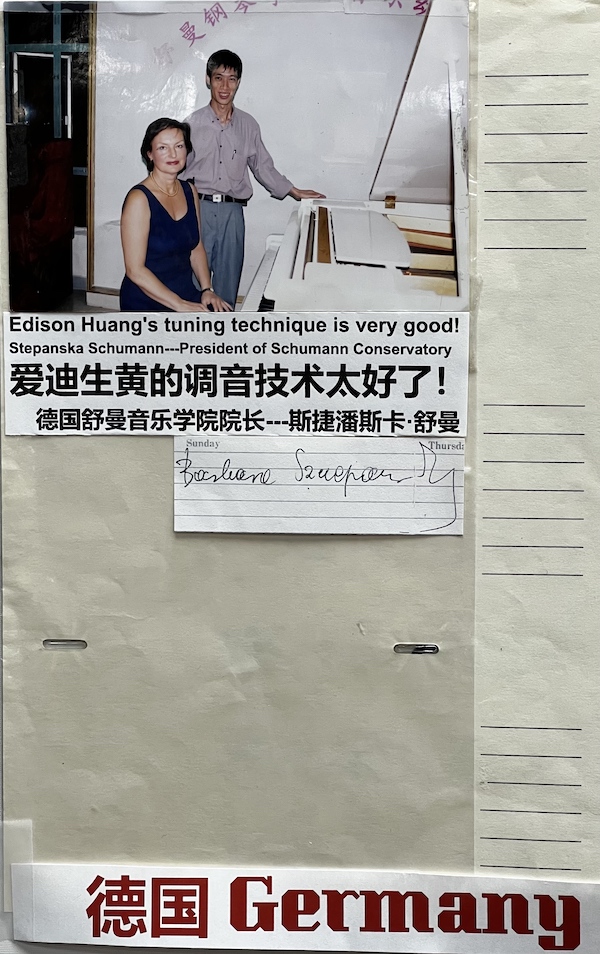 曼钢琴
Edison Huang's tuning technique is very good!
Stepanska Schumann---President of Schumann Conservatory
爱迪生黄的调音技术太好了！
德国舒曼音乐学院院长---斯捷潘斯卡·舒曼
Sunday Thursd
Barbara
德国 Germany